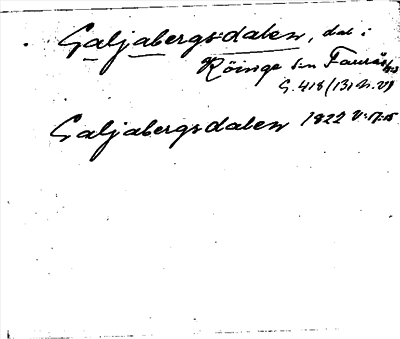 Galjabergsdalen, dal i
Röinge sn Faurås
G. 418 (131 n. V)
Galjabergsdalen 1822 V:17:15